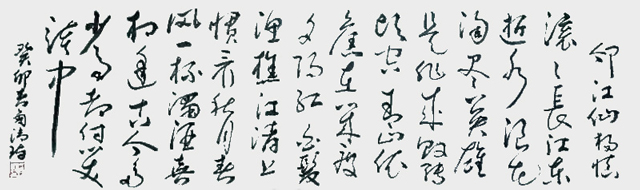 临江仙杨慎
滚々長江东
逝水浪花
淘尽英雄
是非成败转
头空青山依
舊在几度
夕阳红白髮
渔樵江渚上
惯看秋月春
风一杯浊酒喜
相逢古今多
少事都付笑
谈中
癸卯春